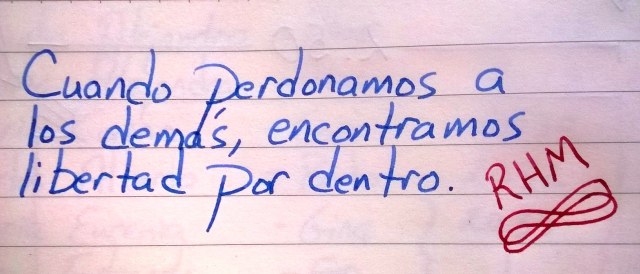 Cuando perdonamos a
los demás, encontramos
libertad por dentro.
RHM